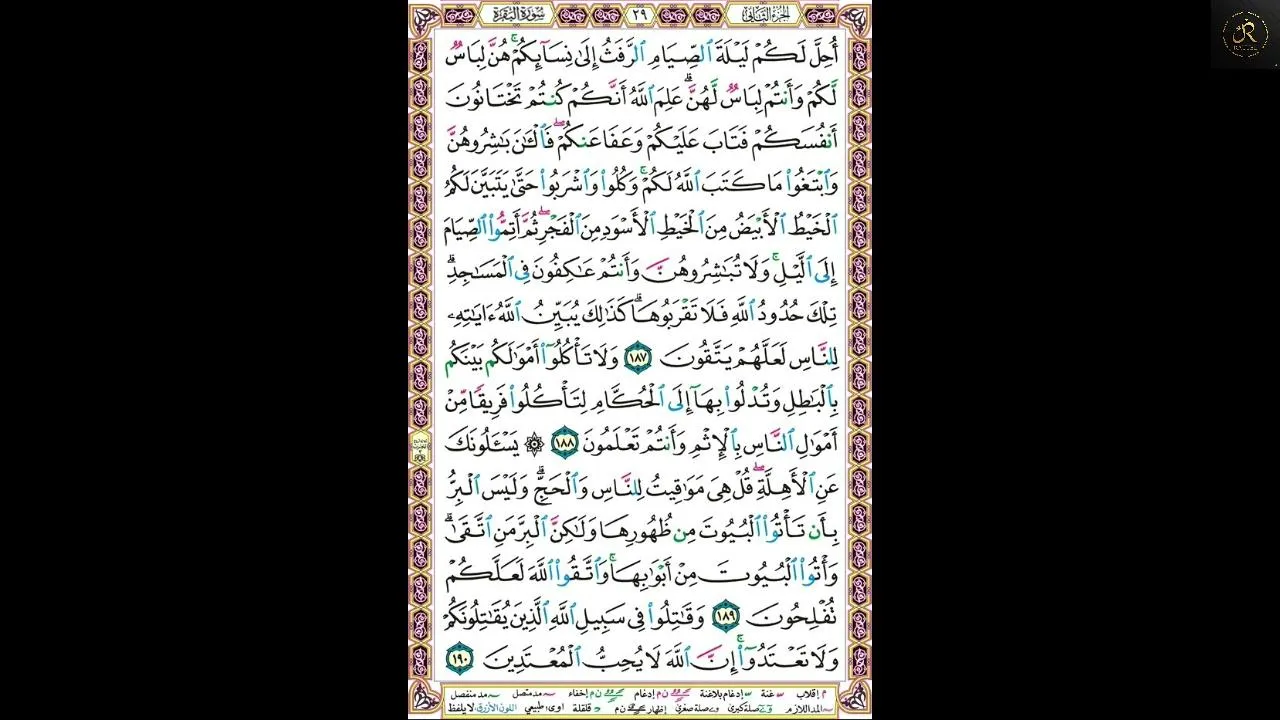 الجزء الثاني
٢٩
سورة البقرة
أُحِلَّ لَكُمْ لَيْلَةَ ٱلصِّيَامِ ٱلرَّفَثُ إِلَىٰ نِسَآئِكُمْ ۚ هُنَّ لِبَاسٌ
لَّكُمْ وَأَنتُمْ لِبَاسٌ لَّهُنَّ ۗ عَلِمَ ٱللَّهُ أَنَّكُمْ كُنتُمْ تَخْتَانُونَ
أَنفُسَكُمْ فَتَابَ عَلَيْكُمْ وَعَفَا عَنكُمْ ۖ فَٱلْـَٰٔنَ بَـٰشِرُوهُنَّ
وَٱبْتَغُوا۟ مَا كَتَبَ ٱللَّهُ لَكُمْ ۚ وَكُلُوا۟ وَٱشْرَبُوا۟ حَتَّىٰ يَتَبَيَّنَ لَكُمُ
ٱلْخَيْطُ ٱلْأَبْيَضُ مِنَ ٱلْخَيْطِ ٱلْأَسْوَدِ مِنَ ٱلْفَجْرِ ۖ ثُمَّ أَتِمُّوا۟ ٱلصِّيَامَ
إِلَى ٱلَّيْلِ ۚ وَلَا تُبَـٰشِرُوهُنَّ وَأَنتُمْ عَـٰكِفُونَ فِى ٱلْمَسَـٰجِدِ ۗ
تِلْكَ حُدُودُ ٱللَّهِ فَلَا تَقْرَبُوهَا ۗ كَذَٰلِكَ يُبَيِّنُ ٱللَّهُ ءَايَـٰتِهِۦ
لِلنَّاسِ لَعَلَّهُمْ يَتَّقُونَ ١٨٧ وَلَا تَأْكُلُوٓا۟ أَمْوَٰلَكُم بَيْنَكُم
بِٱلْبَـٰطِلِ وَتُدْلُوا۟ بِهَآ إِلَى ٱلْحُكَّامِ لِتَأْكُلُوا۟ فَرِيقًا مِّنْ
أَمْوَٰلِ ٱلنَّاسِ بِٱلْإِثْمِ وَأَنتُمْ تَعْلَمُونَ ١٨٨ ۞ يَسْـَٔلُونَكَ
عَنِ ٱلْأَهِلَّةِ ۖ قُلْ هِىَ مَوَٰقِيتُ لِلنَّاسِ وَٱلْحَجِّ ۗ وَلَيْسَ ٱلْبِرُّ
بِأَن تَأْتُوا۟ ٱلْبُيُوتَ مِن ظُهُورِهَا وَلَـٰكِنَّ ٱلْبِرَّ مَنِ ٱتَّقَىٰ ۗ
وَأْتُوا۟ ٱلْبُيُوتَ مِنْ أَبْوَٰبِهَا ۚ وَٱتَّقُوا۟ ٱللَّهَ لَعَلَّكُمْ
تُفْلِحُونَ ١٨٩ وَقَـٰتِلُوا۟ فِى سَبِيلِ ٱللَّهِ ٱلَّذِينَ يُقَـٰتِلُونَكُمْ
وَلَا تَعْتَدُوٓا۟ ۚ إِنَّ ٱللَّهَ لَا يُحِبُّ ٱلْمُعْتَدِينَ ١٩٠
م إقلاب غنة إدغام بلاغنة ن م إدغام ن م إخفاء مد متصل مد منفصل
المد اللازم صلة كبرى صلة صغرى إظهار ن م قلقلة طبيعي اللون الأزرق لا يلفظ